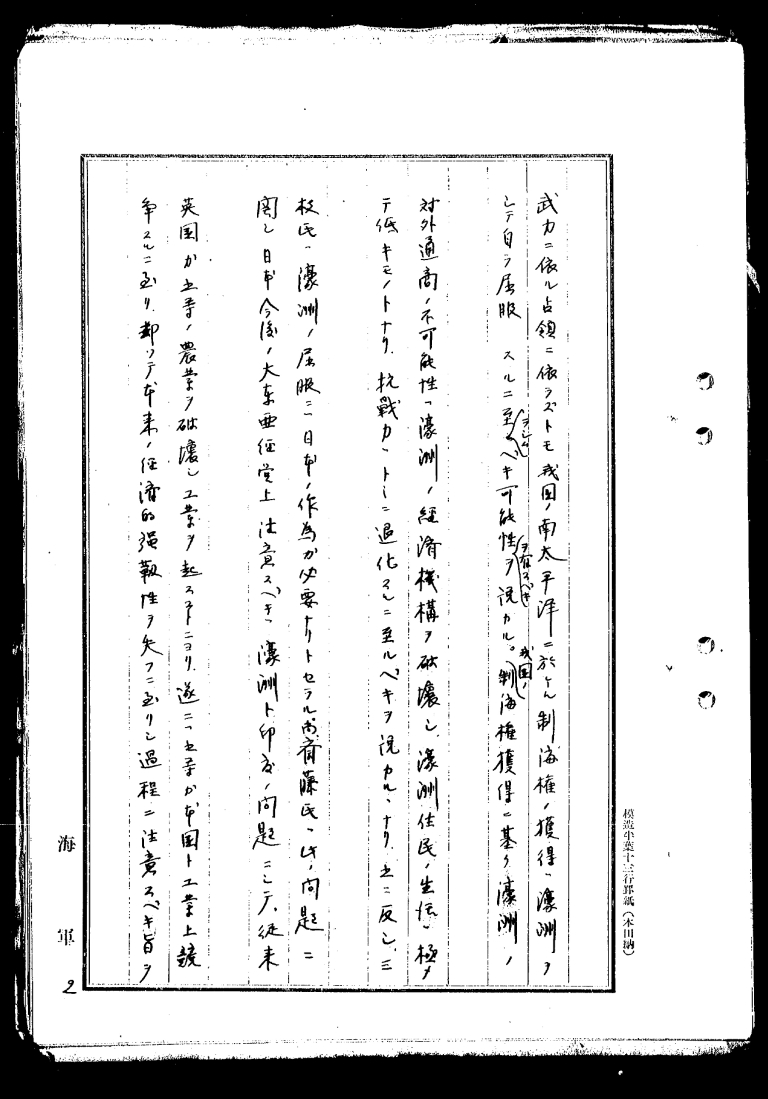 模造半葉十三行罫紙(本田納)
武力ニ依ル占領ニ依ラズトモ我国ノ南太平洋ニ於ケル制海権ノ獲得ハ濠洲ヲ
シテ自ラ屈服スルニ至ラシムベキ可能性ヲ有スベキヲ説カル。我国ノ制海権獲得ニ基ク濠洲ノ
対外通商ノ不可能性ハ濠洲ノ経済機構ヲ破壊シ、濠洲住民ノ生活ハ極メ
テ低キモノトナリ、抗戦力ハトミニ退化スルニ至ルベキヲ説カルヽナリ、之ニ反シ、三
枝氏ハ濠洲ノ屈服ニハ日本ノ作為ガ必要ナリトセラル尚斎藤氏ハ此ノ問題ニ
関シ日本今後ノ大東亜経営上注意スベキハ濠洲ト印度ノ問題ニシテ、従来
英国ガ之等ノ農業ヲ破壊シ工業ヲ起スコトニヨリ、遂ニハ之等ガ本国ト工業上競
争スルニ至リ、却ツテ本来ノ経済的強靱性ヲ失フニ至リシ過程ニ注意スベキ旨ヲ
海軍
2